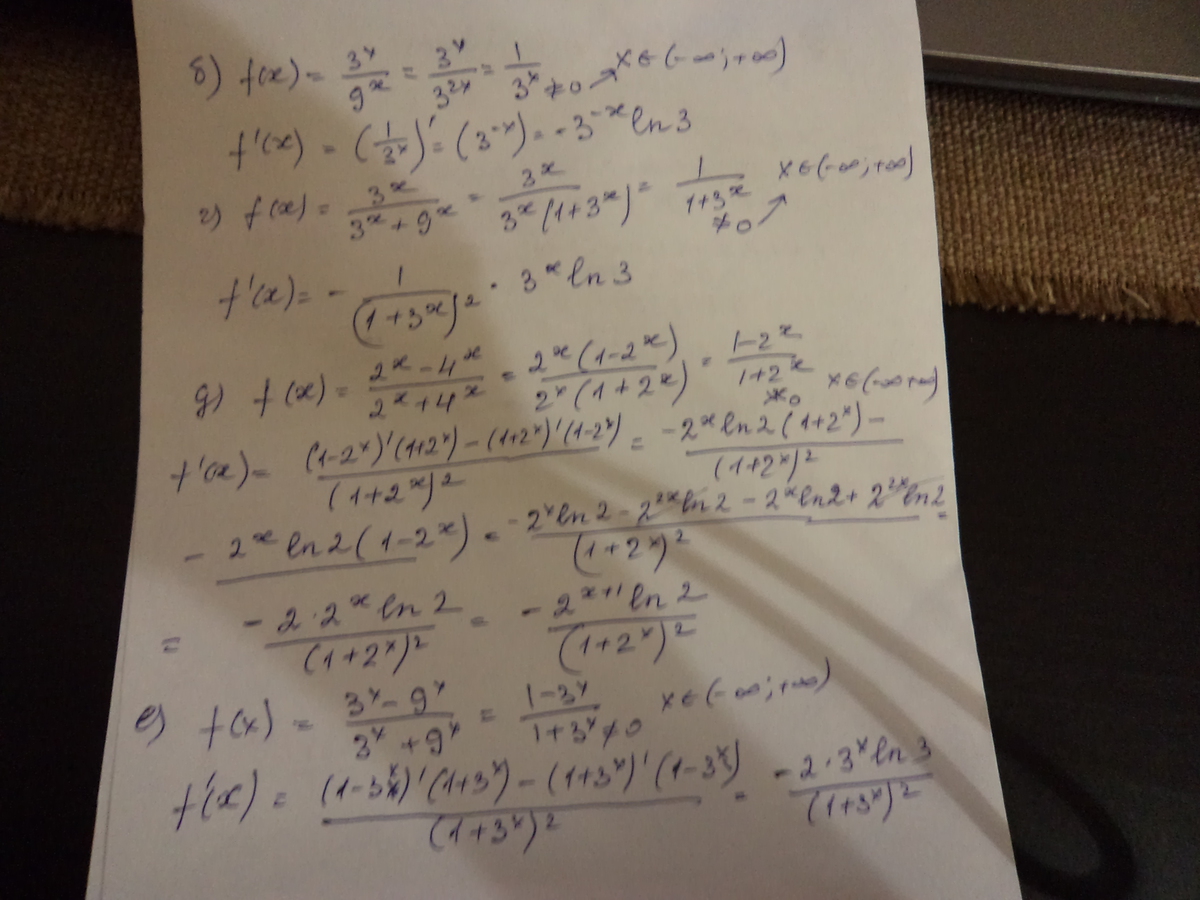 б) f(x) = 3^x/9^x = 3^x/3^{2x} = 1/3^x ≠0 ↗ x∈(-∞;+∞)
f'(x) = (1/3^x)' = (3^{-x}) = -3^{-x} ln3
г) f(x) = 3^x/(3^x+9^x) = 3^x/(3^x(1+3^x)) = 1/(1+3^x) ≠0 ↗ x∈(-∞;+∞)
f'(x) = - 1/(1+3^x)^2 · 3^x ln3
д) f(x) = (2^x-4^x)/(2^x+4^x) = 2^x(1-2^x)/(2^x(1+2^x)) = (1-2^x)/(1+2^x) ≠0 x∈(-∞+∞)
f'(x) = ((1-2^x)'(1+2^x)-(1+2^x)'(1-2^x))/(1+2^x)^2 = (-2^x ln2(1+2^x)-)/(1+2^x)^2
- 2^x ln2(1-2^x) = (-2^x ln2-2^{2x} ln2-2^x ln2+2^{2x} ln2)/(1+2^x)^2 =
= (-2·2^x ln2)/(1+2^x)^2 = (-2^{x+1} ln2)/(1+2^x)^2
е) f(x) = (3^x-9^x)/(3^x+9^x) = (1-3^x)/(1+3^x) ≠0 x∈(-∞;+∞)
f'(x) = ((1-3^x)'(1+3^x)-(1+3^x)'(1-3^x))/(1+3^x)^2 = (-2·3^x ln3)/(1+3^x)^2